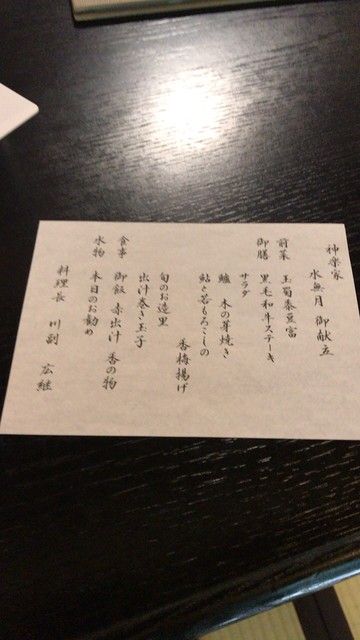 神楽家
水無月 御献立
前菜 玉蜀黍豆富
御膳 黒毛和牛ステーキ
サラダ
鱸 木の芽焼き
鮎と若もろこしの
香梅揚げ
旬のお造里
出汁巻き玉子
食事 御飯 赤出汁 香の物
水物 本日のお勧め
料理長 川副 広継